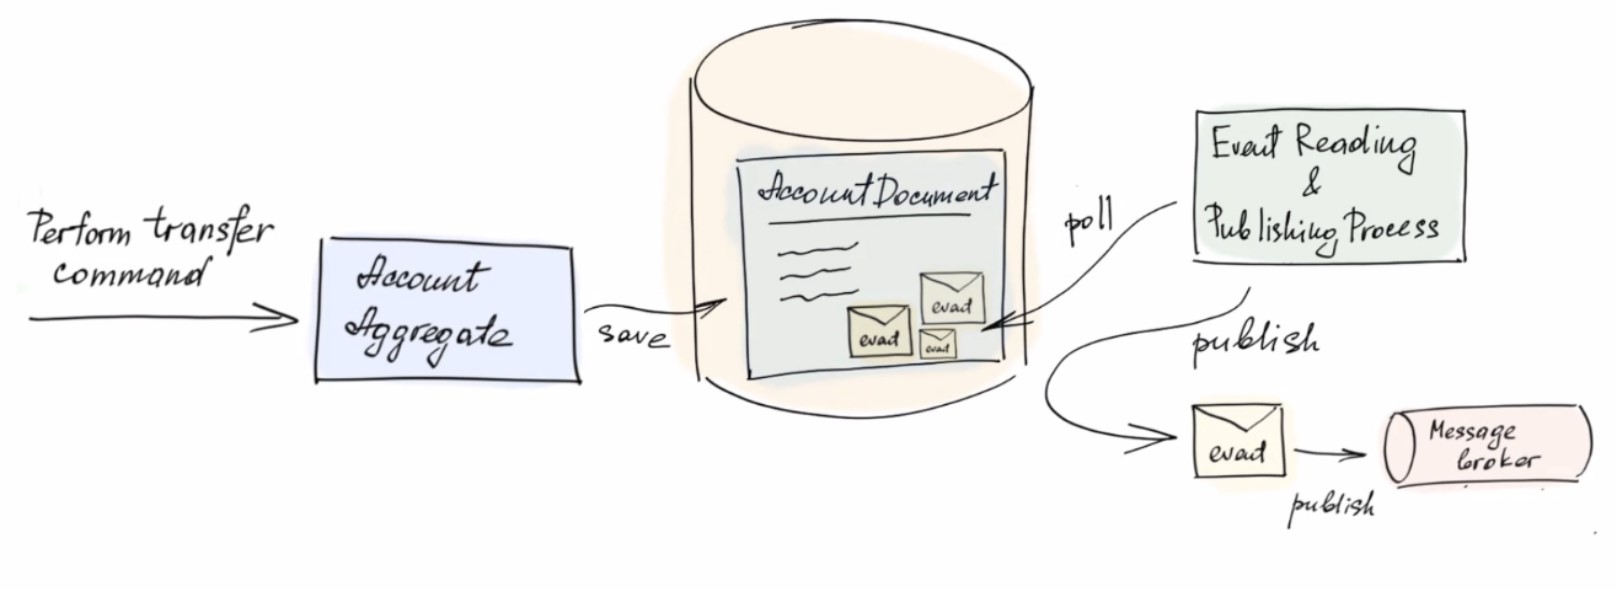 Perform transfer
command
Account
Aggregate
save
Account Document
event
event
event
poll
Event Reading
&
Publishing Process
publish
event
publish
Message
broker